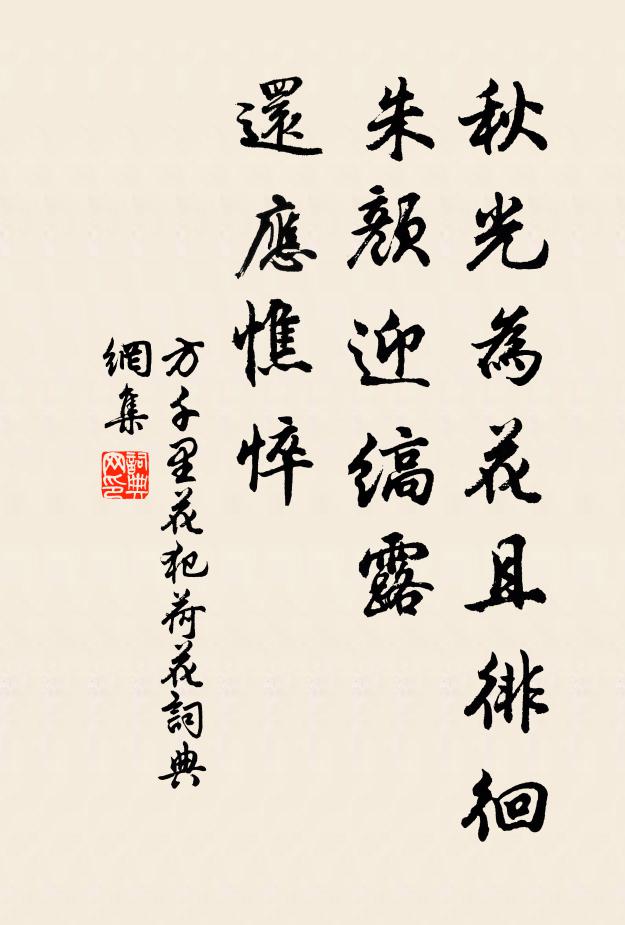 秋光為花且徘徊
朱顏迎縞露
還應憔悴
方千里花犯荷花詞典
網集
詞典
网印